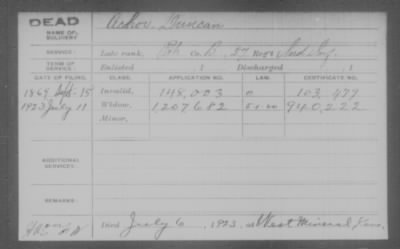 DEAD
NAME OF SOLDIER: Duncan
SERVICE: Late rank, Pvt Co. B, 27 Reg't Ind Inf.
TERM OF SERVICE: Enlisted , 1 Discharged , 1
DATE OF FILING. CLASS. APPLICATION NO. LAW. CERTIFICATE NO.
1869 Sept 15 Invalid, 148,003 103,477
1923 July 11 Widow, 1207682 940222
Minor,
ADDITIONAL SERVICES:
REMARKS:
Died July 6, 1923, at West Mineral, Kans.